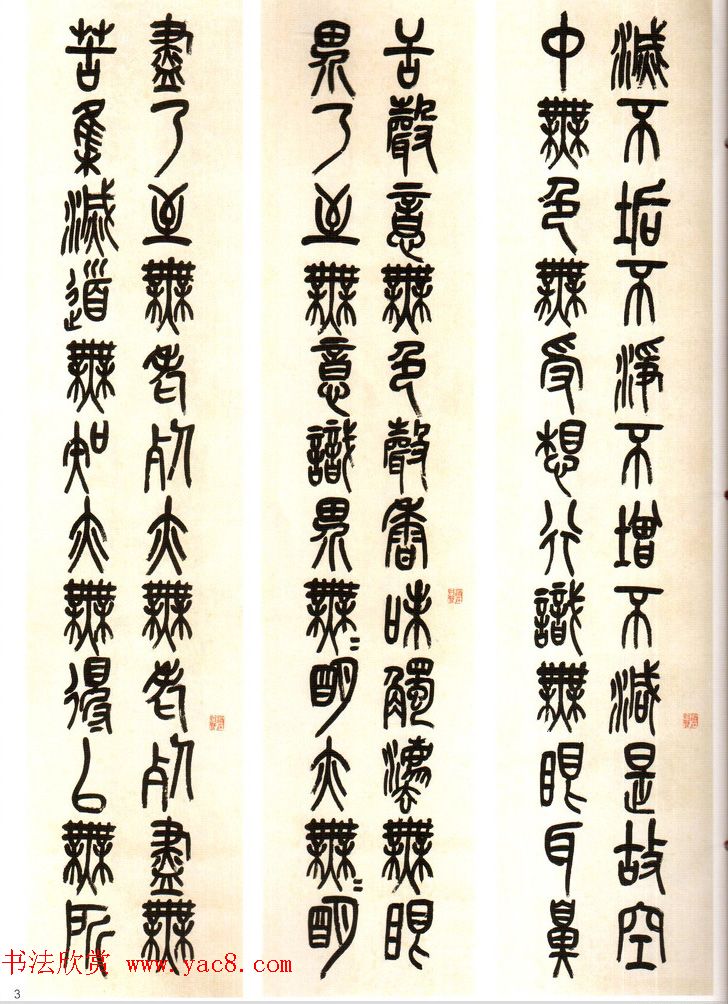 滅不垢不淨不增不減是故空
中無色無受想行識無眼耳鼻
舌聲意無色聲香味觸法無眼
界乃至無意識界無〻明亦無〻明
盡乃至無老死亦無老死盡無
苦集滅道無知亦無得以無所
书法欣赏 www.yac8.com
3